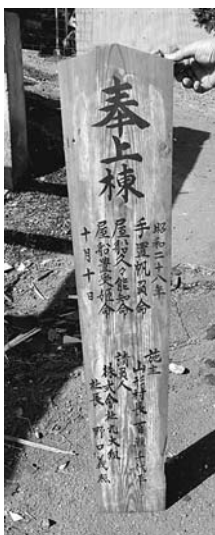 奉上棟
昭和二十八年
手置帆負命
屋船久々能知命
屋船豊受姫命
十月十日
施主
請負人
株式会社
社長 野口義